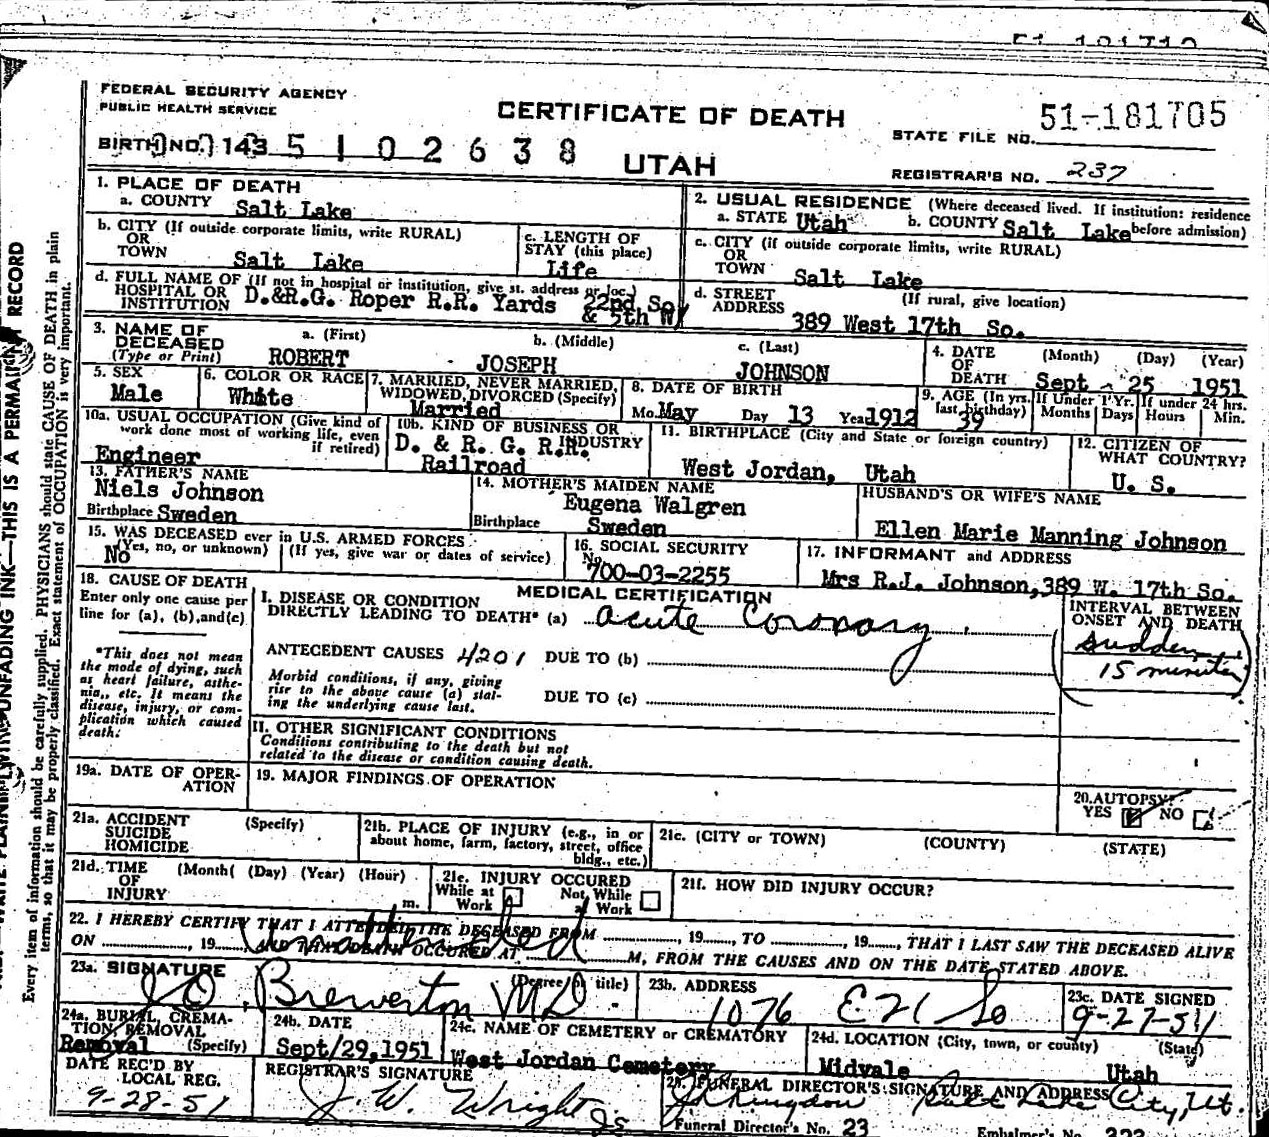 FEDERAL SECURITY AGENCY
PUBLIC HEALTH SERVICE
CERTIFICATE OF DEATH
STATE FILE NO. 51-181705
BIRTH NO. 143 5102638
UTAH
REGISTRAR'S NO. 237
WRITE PLAINLY WITH UNFADING INK—THIS IS A PERMANENT RECORD
Every item of information should be carefully supplied. PHYSICIANS should state CAUSE OF DEATH in plain
terms, so that it may be properly classified. Exact statement of OCCUPATION is very important.
1. PLACE OF DEATH
a. COUNTY Salt Lake
2. USUAL RESIDENCE (Where deceased lived. If institution: residence
a. STATE Utah b. COUNTY Salt Lake before admission)
b. CITY (If outside corporate limits, write RURAL)
OR
TOWN Salt Lake
c. LENGTH OF
STAY (this place)
Life
c. CITY (if outside corporate limits, write RURAL)
OR
TOWN Salt Lake
d. FULL NAME OF (If not in hospital or institution, give st. address or loc.)
HOSPITAL OR
INSTITUTION D.&R.G. Roper R.R. Yards 22nd So.
& 5th W
d. STREET (If rural, give location)
ADDRESS 389 West 17th So.
3. NAME OF
DECEASED
(Type or Print)
a. (First) b. (Middle) c. (Last)
ROBERT JOSEPH JOHNSON
4. DATE (Month) (Day) (Year)
OF
DEATH Sept 25 1951
5. SEX
Male
6. COLOR OR RACE
White
7. MARRIED, NEVER MARRIED,
WIDOWED, DIVORCED (Specify)
Married
8. DATE OF BIRTH
Mo. May Day 13 Year 1912
9. AGE (In yrs. last birthday) 39
If Under 1 Yr. Months Days
If under 24 hrs. Hours Min.
10a. USUAL OCCUPATION (Give kind of
work done most of working life, even
if retired)
Engineer
10b. KIND OF BUSINESS OR
INDUSTRY
D. & R. G. R.R.
Railroad
11. BIRTHPLACE (City and State or foreign country)
West Jordan, Utah
12. CITIZEN OF
WHAT COUNTRY?
U. S.
13. FATHER'S NAME
Niels Johnson
Birthplace Sweden
14. MOTHER'S MAIDEN NAME
Eugena Walgren
Birthplace Sweden
HUSBAND'S OR WIFE'S NAME
Ellen Marie Manning Johnson
15. WAS DECEASED ever in U.S. ARMED FORCES
(Yes, no, or unknown) (If yes, give war or dates of service)
No
16. SOCIAL SECURITY
No.
700-03-2255
17. INFORMANT and ADDRESS
Mrs R.J. Johnson, 389 W. 17th So.
18. CAUSE OF DEATH
Enter only one cause per
line for (a), (b), and (c)
*This does not mean
the mode of dying, such
as heart failure, asthe-
nia,, etc. It means the
disease, injury, or com-
plication which caused
death.
MEDICAL CERTIFICATION
I. DISEASE OR CONDITION
DIRECTLY LEADING TO DEATH* (a) acute Coronary
ANTECEDENT CAUSES 4201 DUE TO (b)
Morbid conditions, if any, giving
rise to the above cause (a) stat-
ing the underlying cause last.
DUE TO (c)
INTERVAL BETWEEN
ONSET AND DEATH
sudden
15 minutes
II. OTHER SIGNIFICANT CONDITIONS
Conditions contributing to the death but not
related to the disease or condition causing death.
19a. DATE OF OPER-
ATION
19. MAJOR FINDINGS OF OPERATION
20. AUTOPSY?
YES NO
21a. ACCIDENT (Specify)
SUICIDE
HOMICIDE
21b. PLACE OF INJURY (e.g., in or
about home, farm, factory, street, office
bldg., etc.)
21c. (CITY or TOWN) (COUNTY) (STATE)
21d. TIME (Month( (Day) (Year) (Hour)
OF
INJURY m.
21e. INJURY OCCURED
While at Work Not While at Work
21f. HOW DID INJURY OCCUR?
22. I HEREBY CERTIFY THAT I ATTENDED THE DECEASED FROM , 19 , TO , 19 , THAT I LAST SAW THE DECEASED ALIVE
ON , 19 AND THAT DEATH OCCURED AT M, FROM THE CAUSES AND ON THE DATE STATED ABOVE.
Unattended
23a. SIGNATURE (Degree or title)
Brewerton MD
23b. ADDRESS
1076 E 21 So
23c. DATE SIGNED
9-27-51
24a. BURIAL, CREMA-
TION, REMOVAL
(Specify)
Removal
24b. DATE
Sept/29,1951
24c. NAME OF CEMETERY or CREMATORY
West Jordan Cemetery
24d. LOCATION (City, town, or county) (State)
Midvale Utah
DATE REC'D BY
LOCAL REG.
9-28-51
REGISTRAR'S SIGNATURE
J. W. Wright
25. FUNERAL DIRECTOR'S SIGNATURE AND ADDRESS
Salt Lake City, Ut.
Funeral Director's No. 23 Embalmer's No. 323